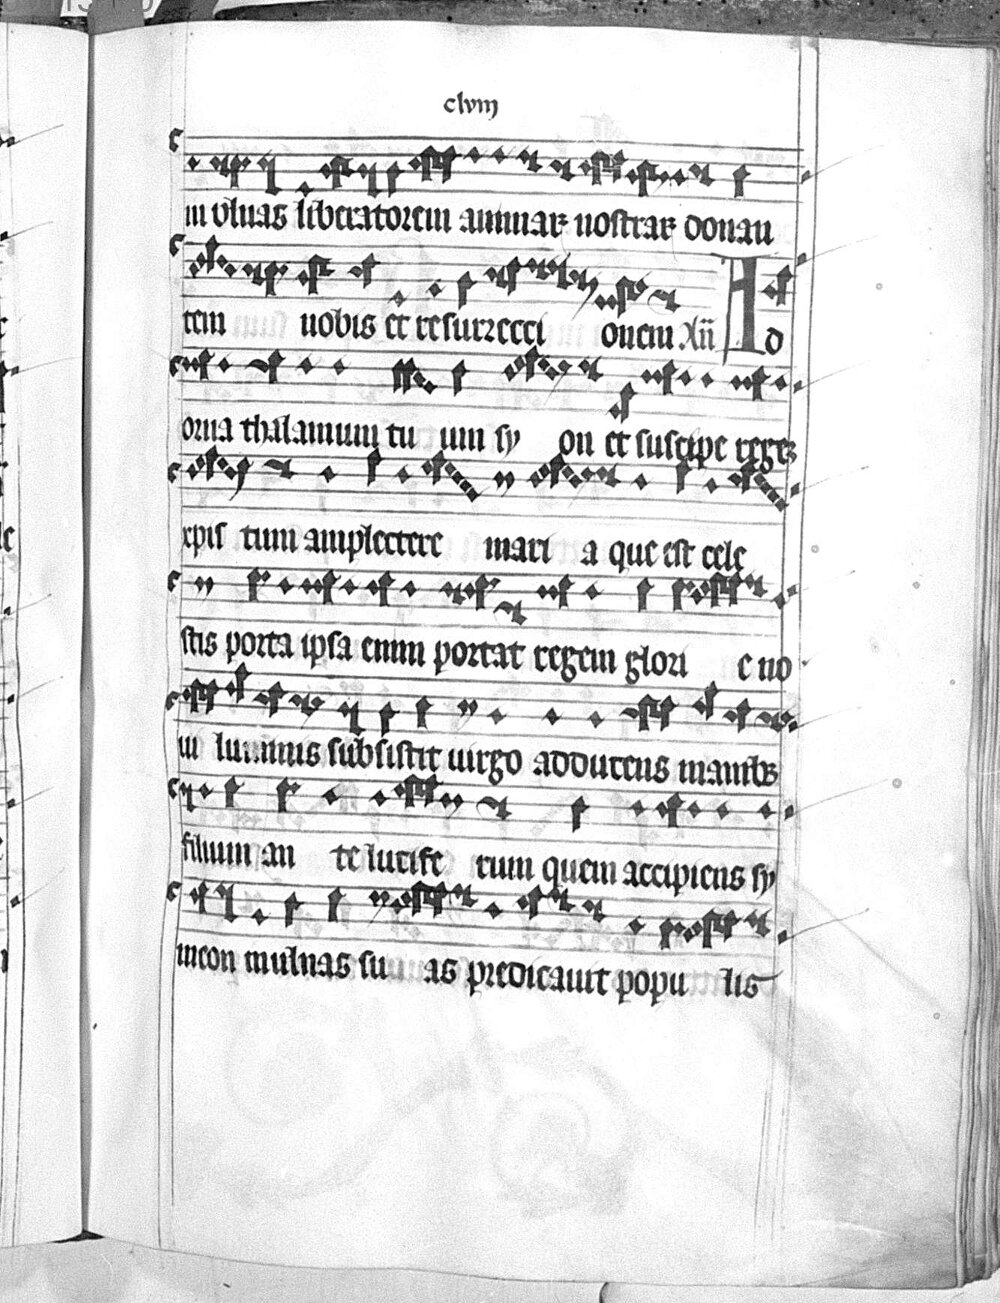 clviij
in vlnas liberatorem animarꝝ nostrarꝝ donan
tem nobis et resurrecci onem Añ Ad
orna thalamum tu um sy on et suscipe regē
xpis tum amplectere mari a que est cele
stis porta ipsa enim portat regem glori e no
ui luminis subsistit uirgo adducens manibꝫ
filium an te lucife rum quem accipiens sy
meon in ulnas su as predicauit popu lis